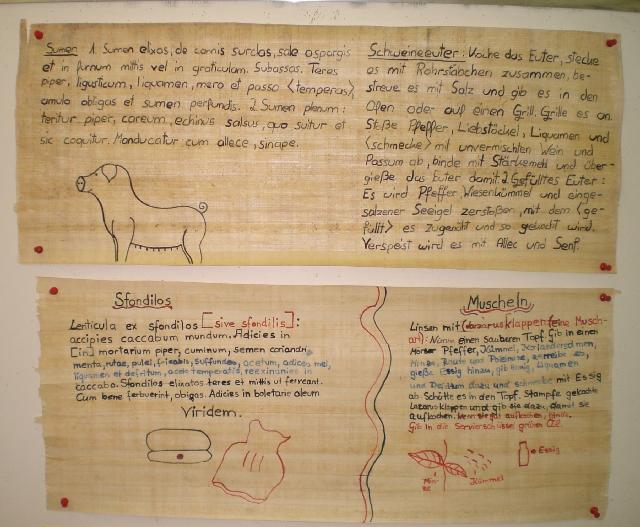 Sumen 1 Sumen elixas, de cannis surclas, sale aspargis
et in furnum mittis vel in graticulam. Subassas. Teres
piper, ligusticum, liquamen, mero et passo <temperas>,
amulo obligas et sumen perfundis. 2 Sumen plenum:
teritur piper, careum, echinus salsus, quo suitur et
sic coquitur. Manducatur cum allece, sinape.
Schweineeuter: Koche das Euter, stecke
es mit Rohrstäbchen zusammen, be-
streue es mit Salz und gib es in den
Ofen oder auf einen Grill. Grille es an.
Stoße Pfeffer, Liebstöckel, Liquamen und
<schmecke> mit unvermischten Wein und
Passum ab, binde mit Stärkemehl und über-
gieße das Euter damit. 2 Gefülltes Euter:
Es wird Pfeffer, Wiesenkümmel und einge-
salzener Seeigel zerstoßen, mit dem <ge-
füllt> es zugenäht und so gekocht wird.
Verspeist wird es mit Allec und Senf.
Sfondilos
Lenticula ex sfondilos [sive sfondilis]:
accipies caccabum mundum. Adicies in
[in] mortarium piper, cuminum, semen coriandri,
menta, rutae, pulei, fricabis, suffundes, acetum, adicies mel,
liquamen et defritum, aceto temperatis, reexinanies in
caccabo. Sfondilos elixatos teres et mittis ut ferveant.
Cum bene ferbuerint, obligas. Adicies in boletarie oleum
Viridem.
Muscheln
Linsen mit (Lazarusklappen (eine Musch-
art): Nimm einen sauberen Topf. Gib in einen
Mörser Pfeffer, Kümmel, Koriandersamen,
Minze, Raute und Poleiminze, zerreibe es,
gieße Essig hinzu, gib Honig, Liquamen
und Defritum dazu und schmecke mit Essig
ab. Schütte es in den Topf. Stampfe gekochte
Lazarusklappen und gib sie dazu, damit sie
aufkochen. Wenn sie gut aufkochen, binde.
Gib in die Servierschüssel grünes Öl.
Min-
ze
Kümmel
Essig